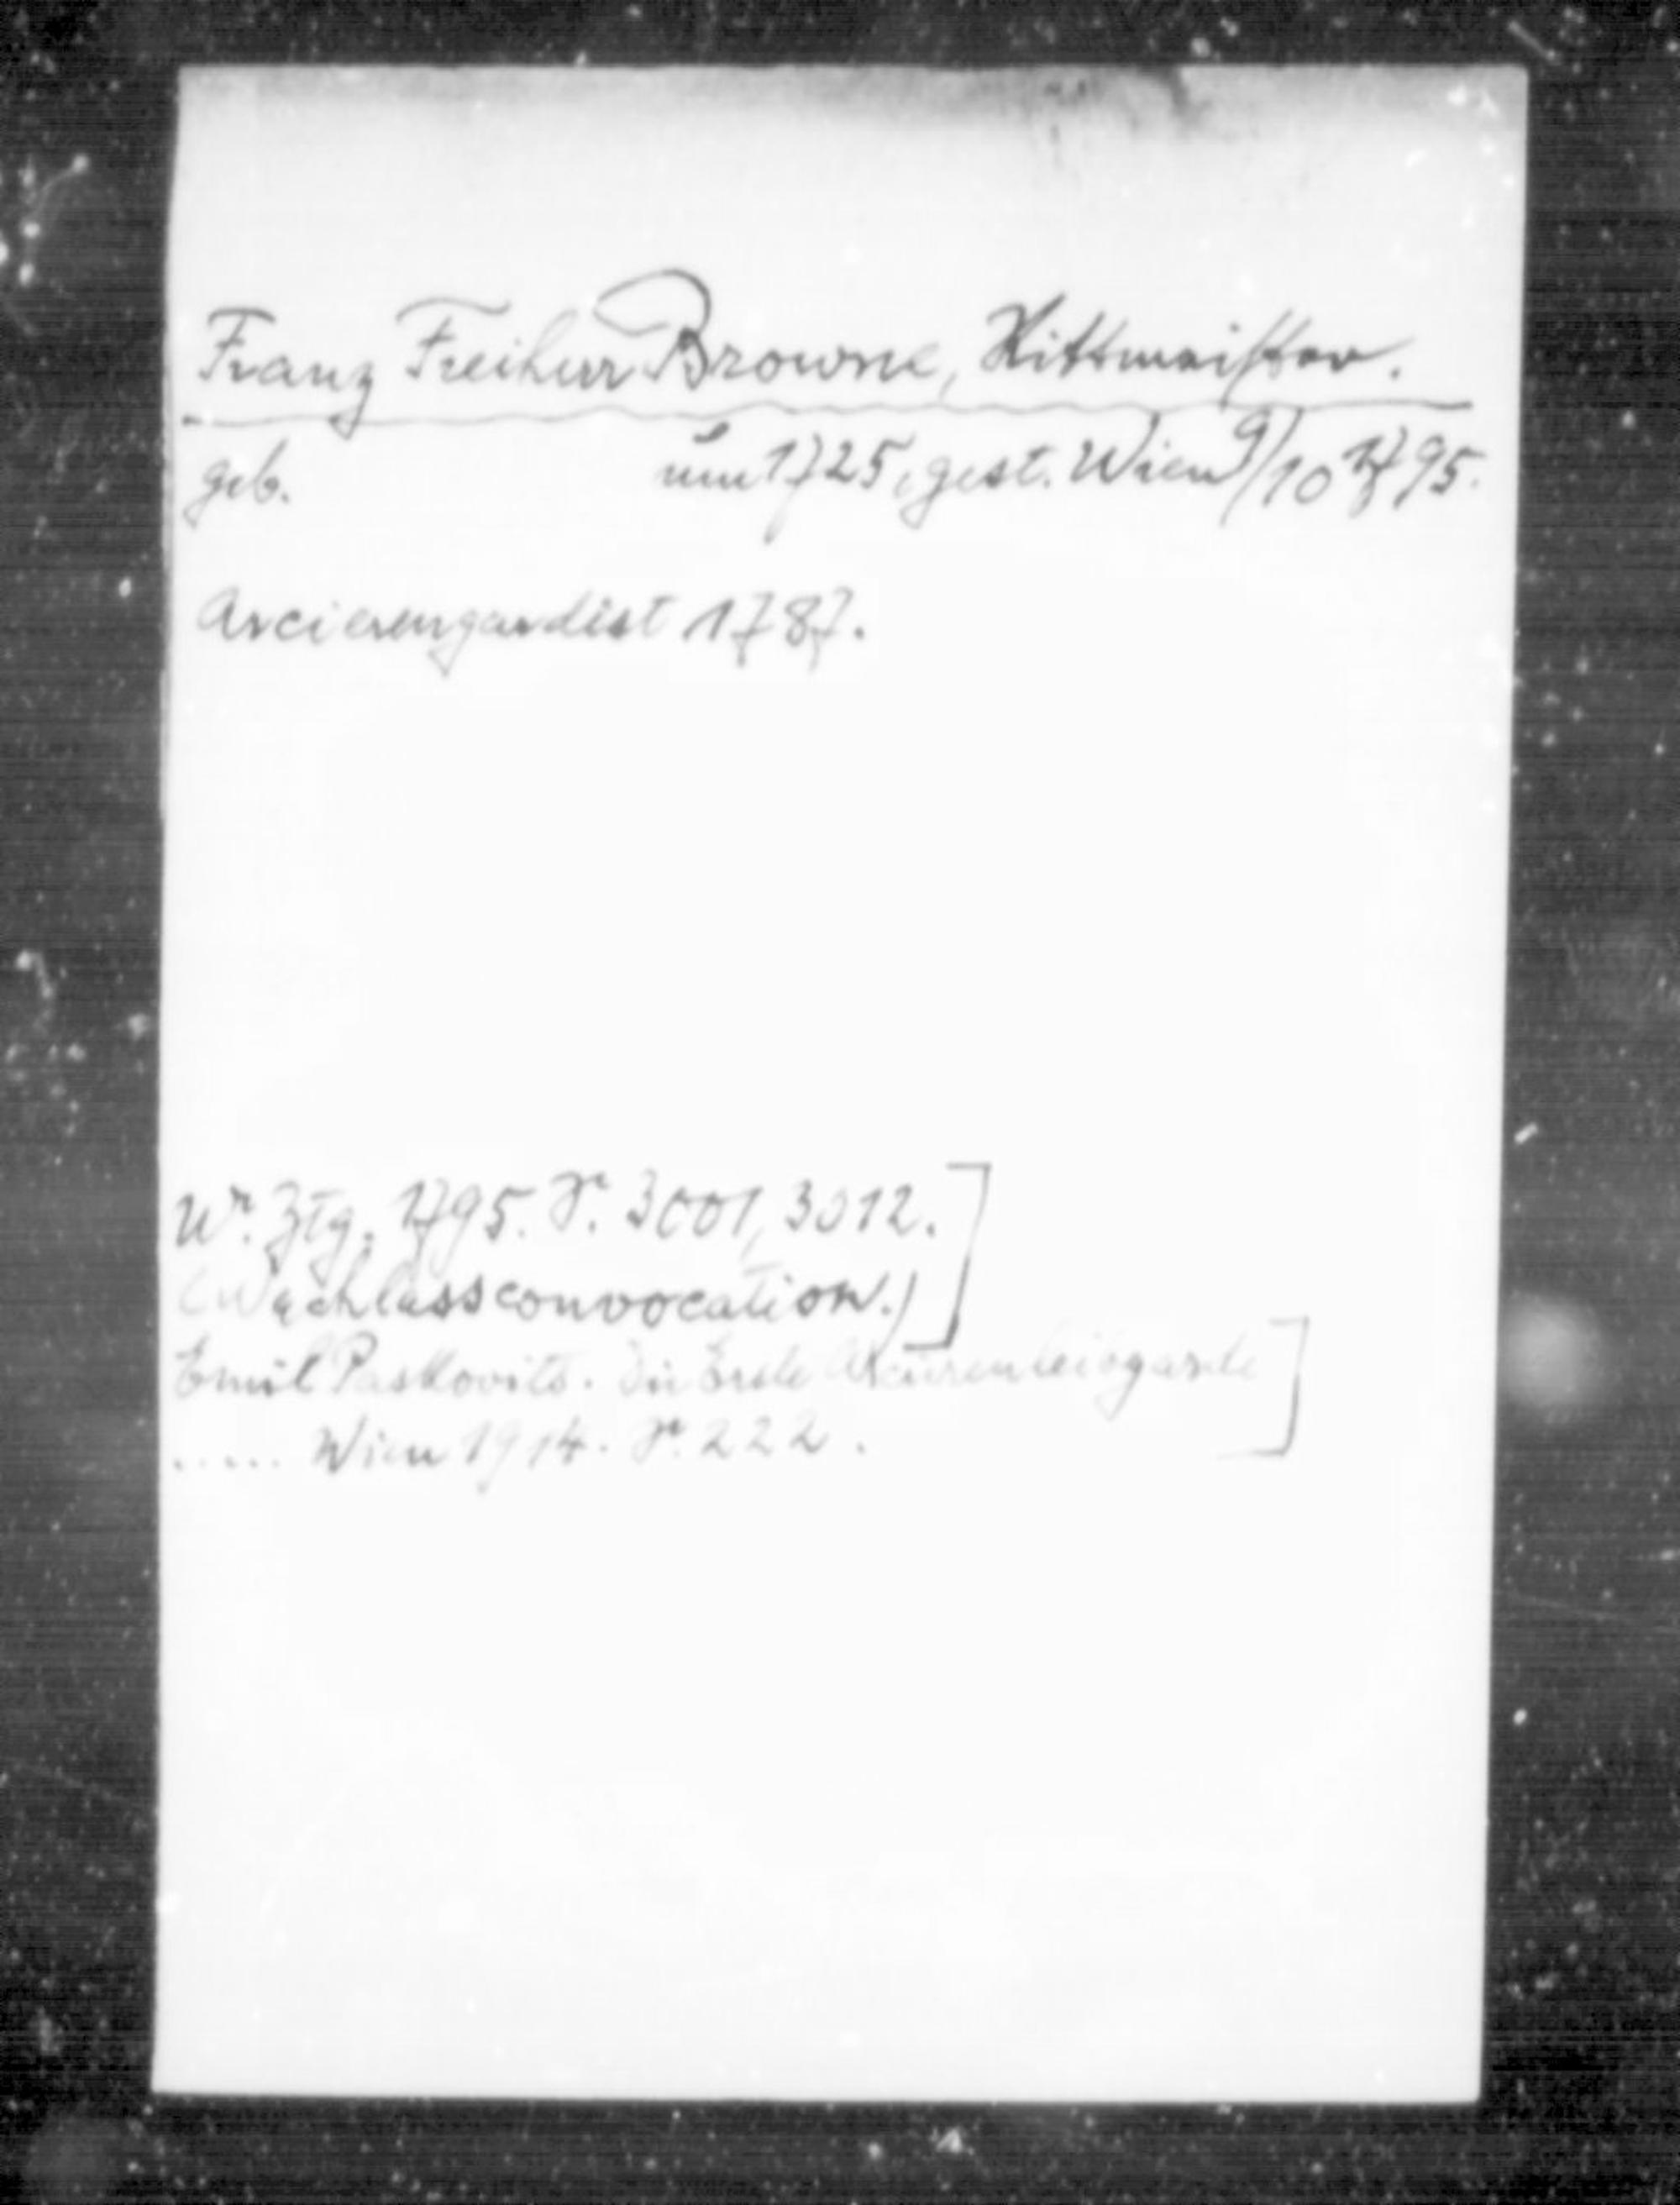 Franz Freiherr Browne, Rittmeister.
geb. um 1725, gest. Wien 9/10 1795.
Arcierengardist 1787.
Wr. Ztg. 1795. S. 3001, 3012.
(Nachlassconvocation.)
Emil Paskovits. Die Erste Arcierenleibgarde
..... Wien 1914. S. 222.